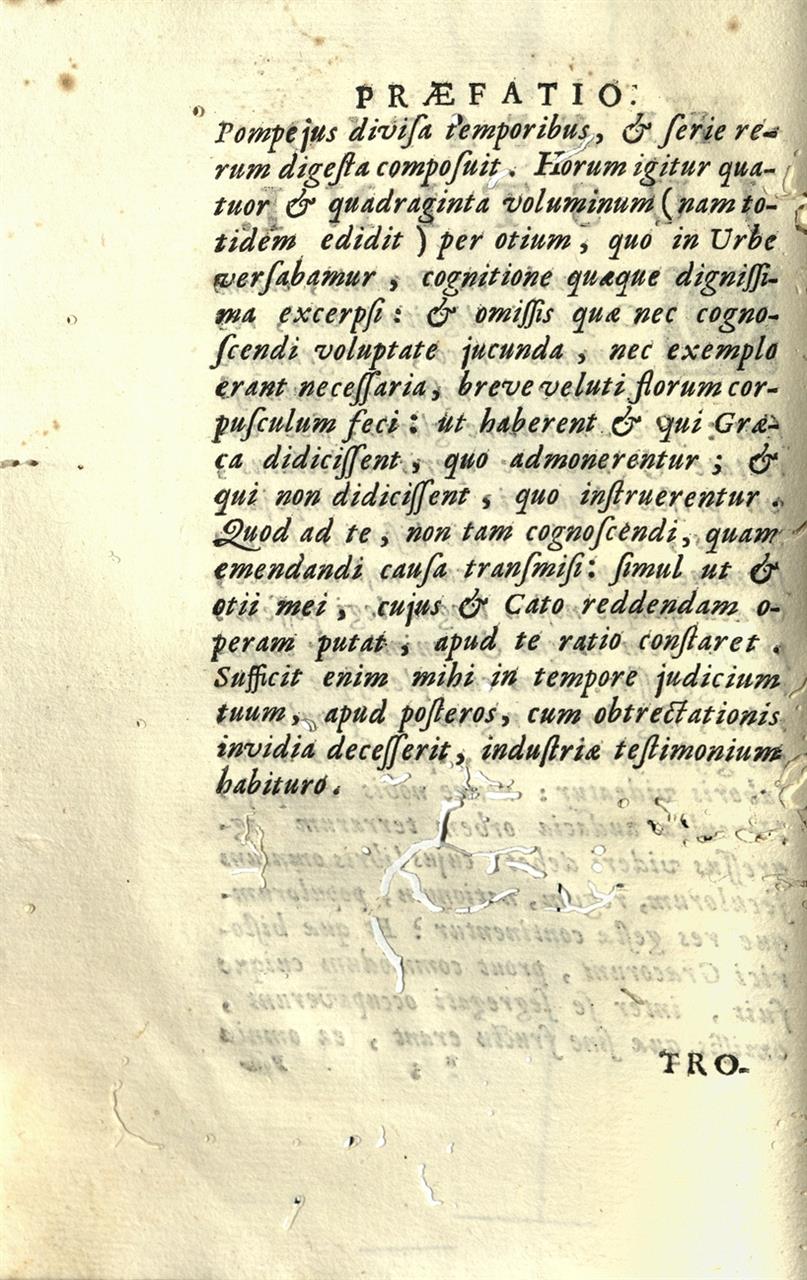 PRÆFATIO.
Pompejus diviſa temporibus, & ſerie re-
rum digeſta compoſuit. Horum igitur qua-
tuor & quadraginta voluminum (nam to-
tidem edidit) per otium, quo in Urbe
verſabamur, cognitione quæque digniſſi-
ma excerpſi: & omiſſis quæ nec cogno-
ſcendi voluptate jucunda, nec exemplo
erant neceſſaria, breve veluti florum cor-
puſculum feci: ut haberent & qui Græ-
ca didiciſſent, quo admonerentur; &
qui non didiciſſent, quo inſtruerentur.
Quod ad te, non tam cognoſcendi, quam
emendandi cauſa tranſmiſi: ſimul ut &
otii mei, cujus & Cato reddendam o-
peram putat, apud te ratio conſtaret.
Sufficit enim mihi in tempore judicium
tuum, apud poſteros, cum obtrectationis
invidia deceſſerit, induſtriæ teſtimonium
habituro.
TRO-